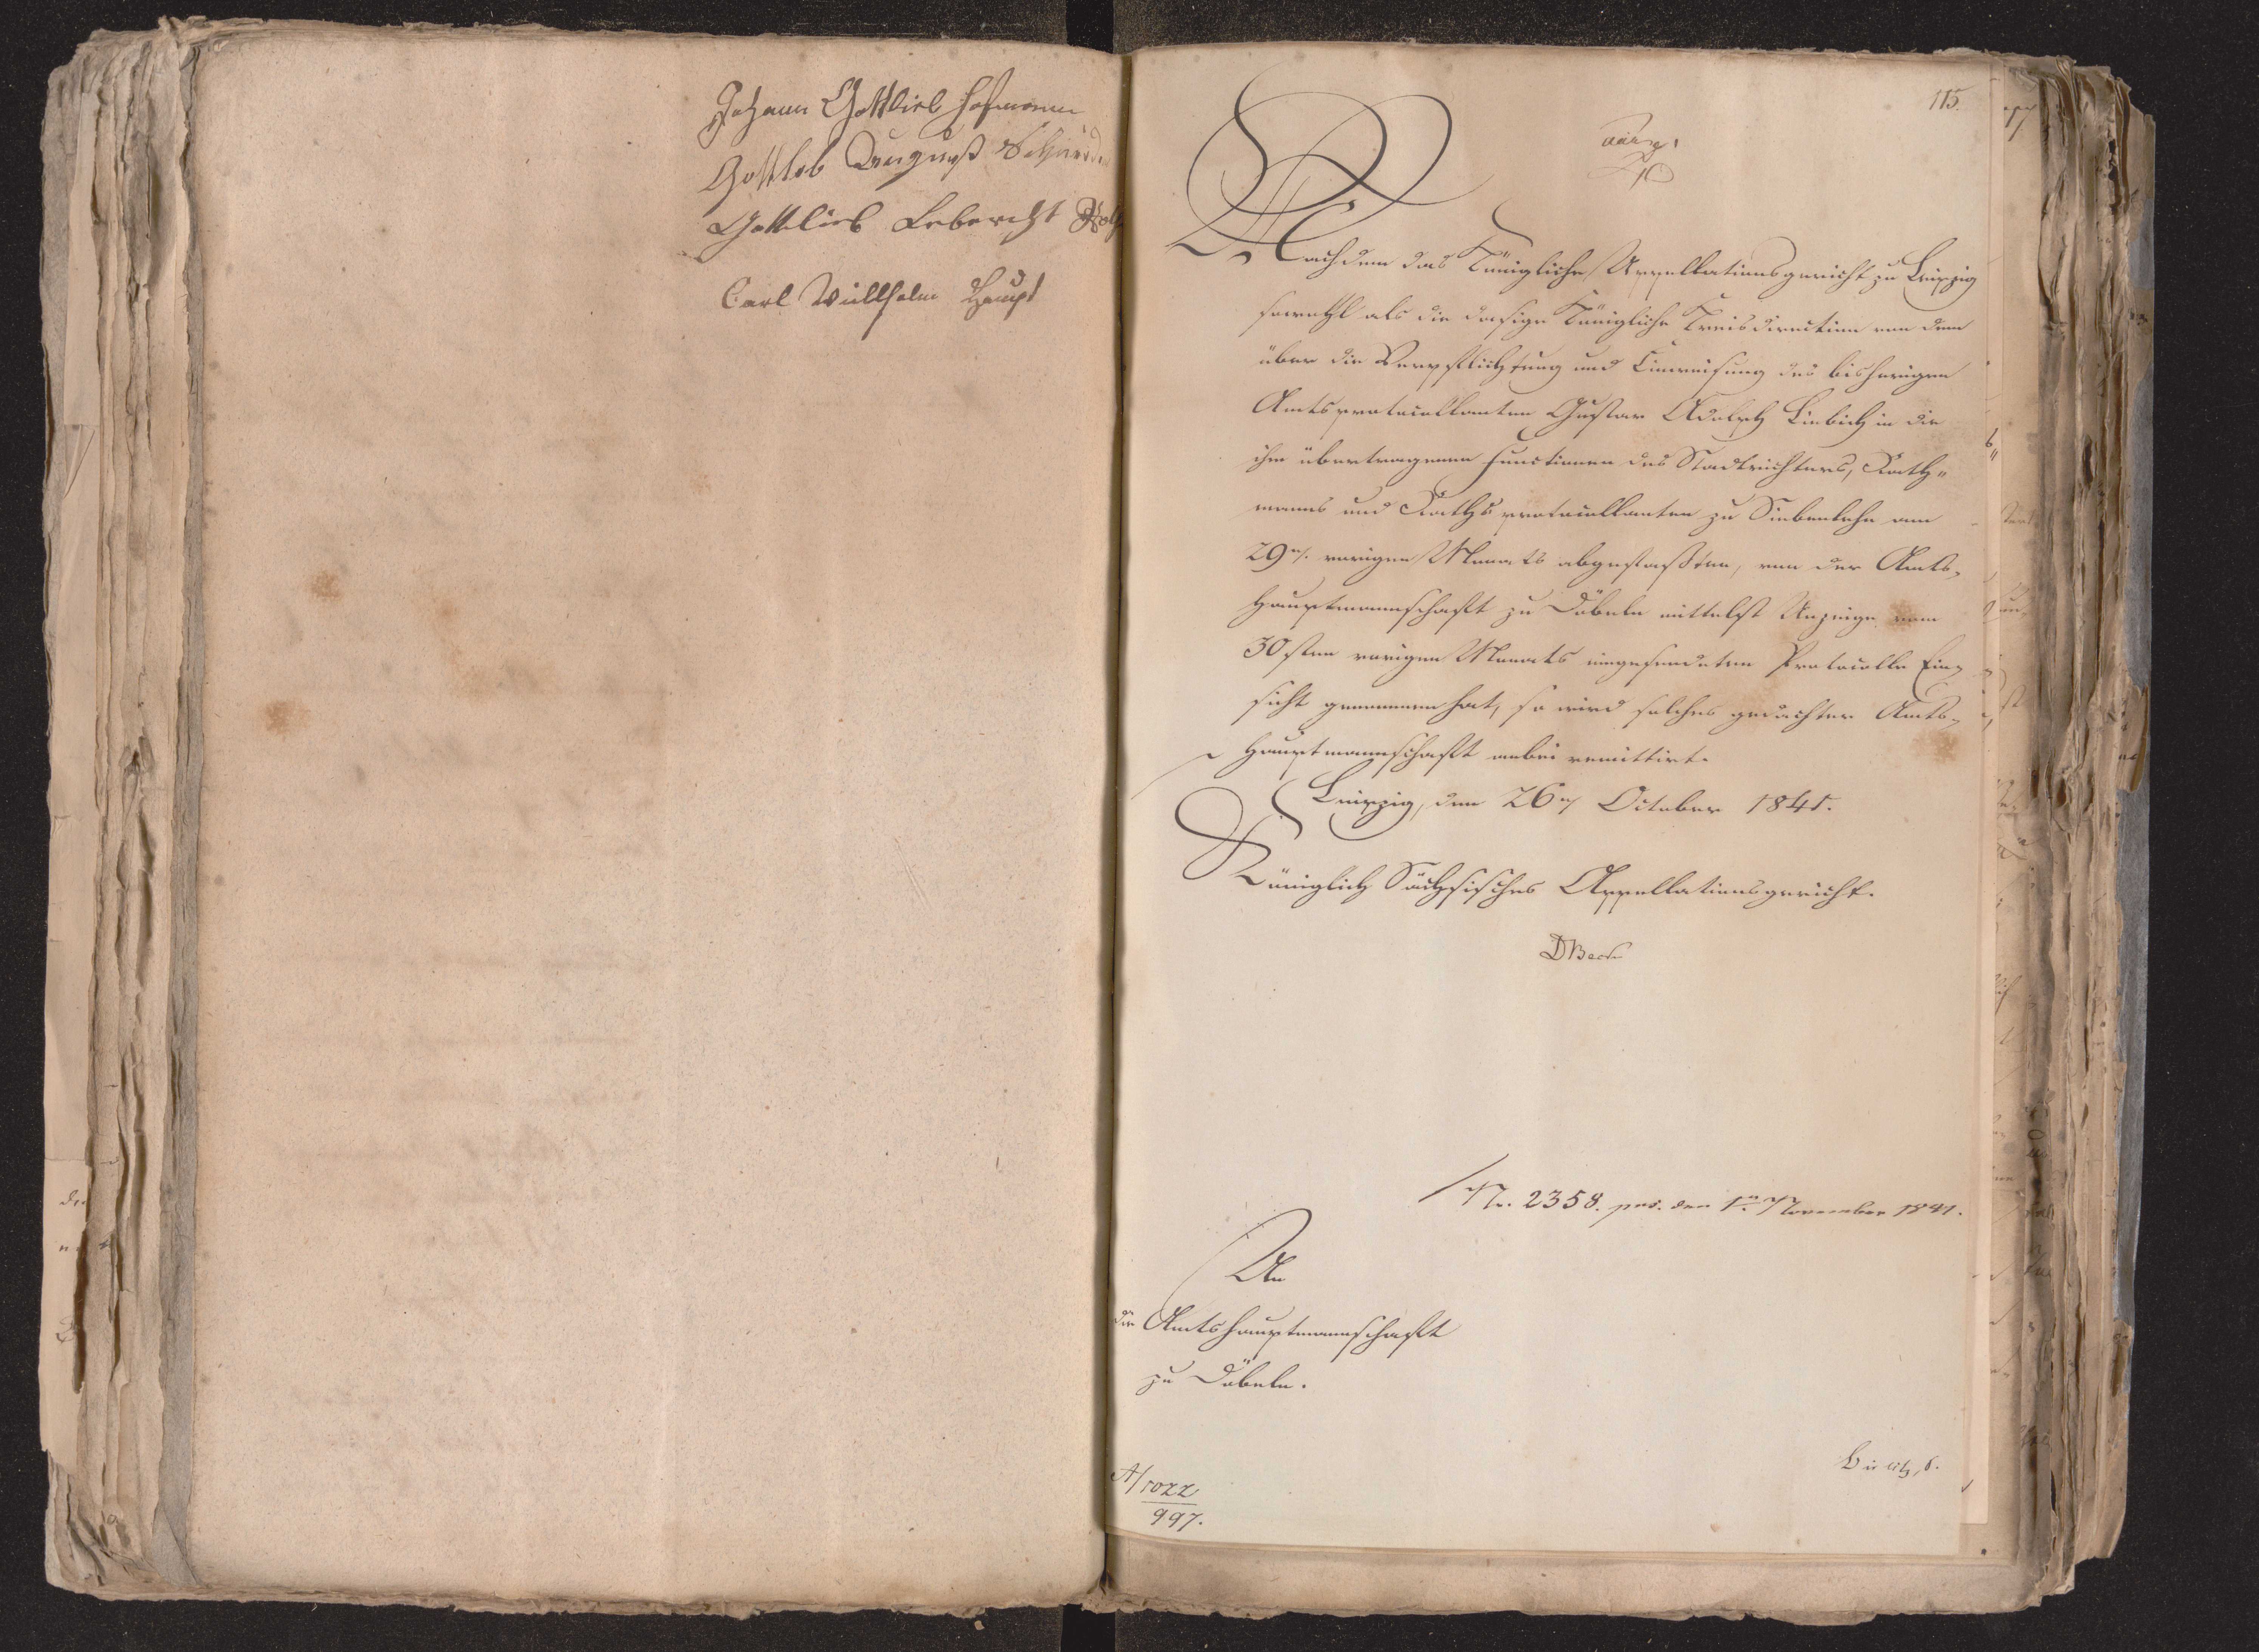 Johann Gottlieb Hofmann
Gottlob August
Gottlieb Leberecht
Carl Willhelm Haupt
115.
Nachdem das Königliche Appellationsgericht zu Leipzig
sowohl als die dasige Königliche Kreisdirection von dem
über die Verpflichtung und Einweisung des bisherigen
Amtsprotocollanten Gustav Adolph Liebich in die
ihm übertragenen Functionen des Stadtrichters, Rath-
manns und Rathsprotocollanten zu Siebenlehn am
29n. vorigen Monats abgefaßten, von der Amts-
hauptmannschaft zu Döbeln mittelst Anzeige vom
30sten vorigen Monats eingesendeten Protocolle Ein-
sicht genommen hat, so wird solches gedachter Amts-
hauptmannschaft anbei remittirt.
Leipzig, den 26n October 1841.
Königlich Sächsisches Appellationsgericht.
D Beck
Nr. 2358. prs. den 1n. November 1841.
An
die Amtshauptmannschaft
zu Döbeln.
A/1022
997.